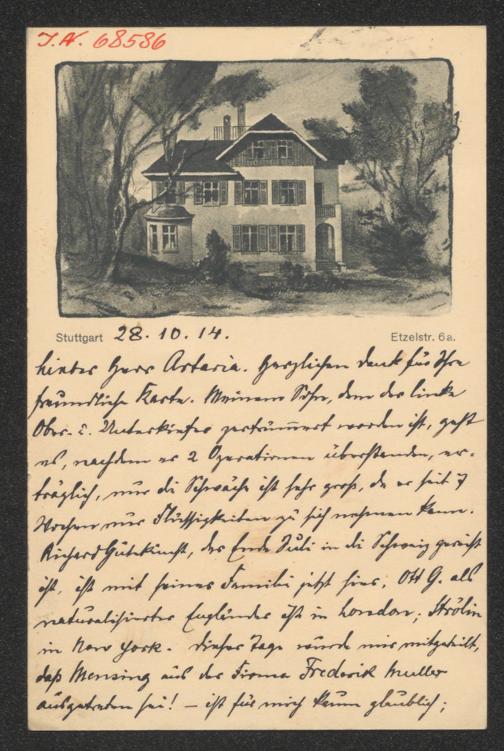 J.N. 68586
Stuttgart 28.10.14. Etzelstr. 6a.
Lieber Herr Artaria. Herzlichen Dank für Ihre
freundliche Karte. Meinem Sohn, dem der linke
Ober- u. Unterkiefer zertrümmert worden ist, geht
es, nachdem er 2 Operationen überstanden, er-
träglich, nur die Schwäche ist sehr groß, da er seit 7
Wochen nur Flüssigkeiten zu sich nehmen kann.
Richard Gutekunst, der Ende Juli in die Schweiz gereist
ist, ist mit seiner Familie jetzt hier, Otto G. als
naturalisierter Engländer ist in London; Strölin
in New York. Dieser Tage wurde mir mitgeteilt,
daß Mensing aus der Firma Frederik Muller
ausgetreten sei! – ist für mich kaum glaublich;